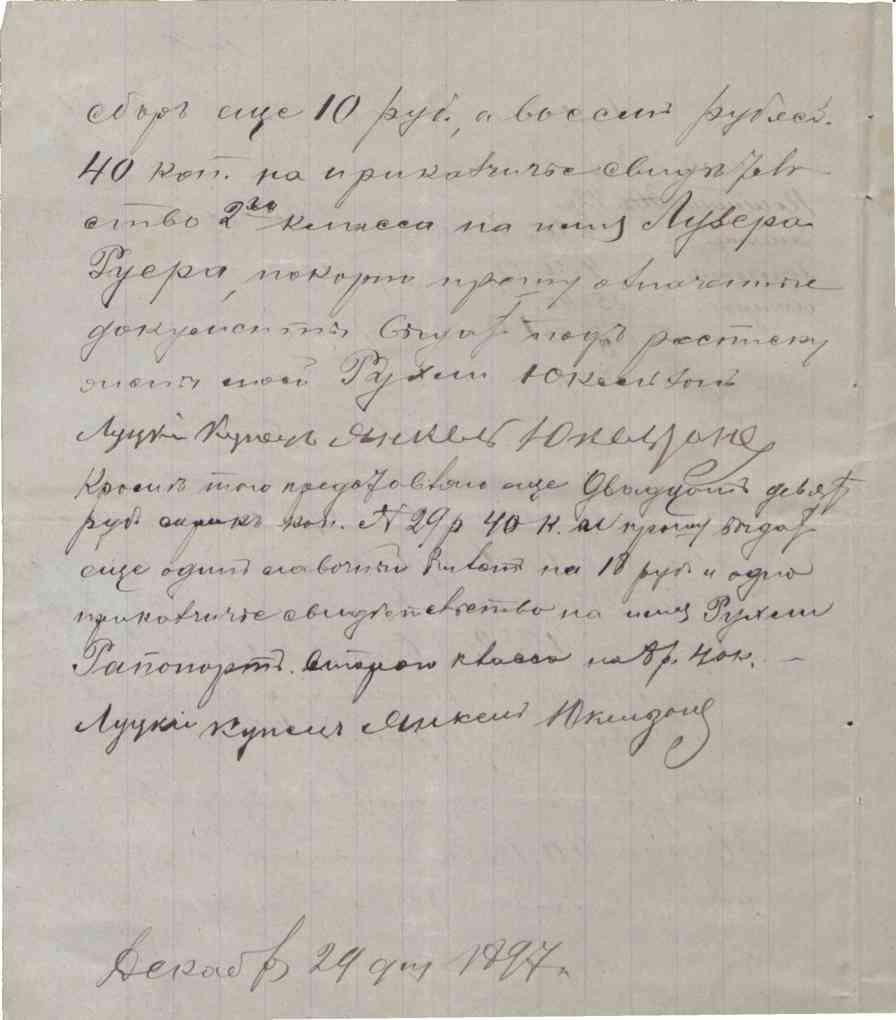 сборъ еще 10 руб., а восемь рублей.
40 коп. на прикащичье свидѣтель
ство 2го класса на имя Лузера
Руера, покорно прошу означенные
документы выдать подъ росписку
жены моей Рухли Юкельзонъ
Луцкій Купецъ Янкель Юкельзонъ
Кромѣ того представляю еще Двадцать девять
руб. сорокъ коп. 29 р 40 к. и прошу выдать
еще одинъ лавочный билетъ на 18 руб. и одно
прикащичье свидѣтельство на имя Рухли
Рапопортъ. второго класса на 8 р. 40 к. —
Луцкій купецъ Янкель Юкельзонъ
Декабря 29 дня 1897.